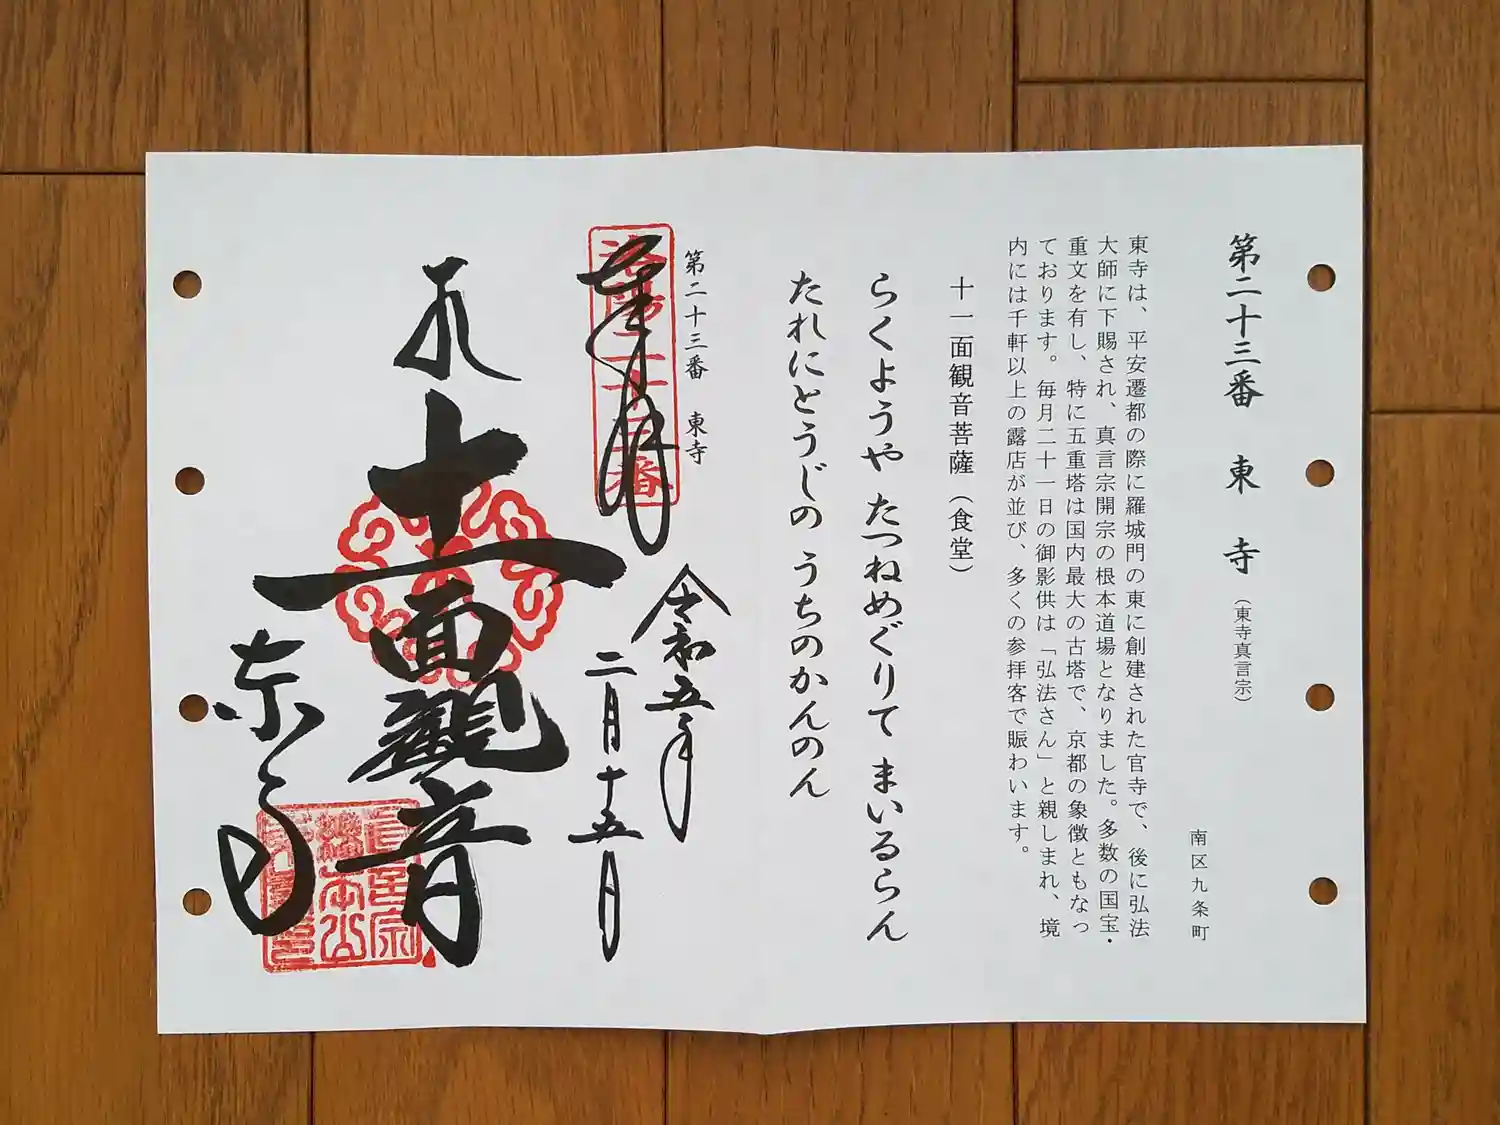 第二十三番 東寺（東寺真言宗）
南区九条町
東寺は、平安遷都の際に羅城門の東に創建された官寺で、後に弘法
大師に下賜され、真言宗開宗の根本道場となりました。多数の国宝・
重文を有し、特に五重塔は国内最大の古塔で、京都の象徴ともなっ
ております。毎月二十一日の御影供は「弘法さん」と親しまれ、境
内には千軒以上の露店が並び、多くの参拝客で賑わいます。
十一面観音菩薩（食堂）
らくようや たつねめぐりて まいるらん
たれにとうじの うちのかんのん
第二十三番 東寺
奉拝
洛陽二十三番
令和五年
二月十五日
十一面觀音
東寺